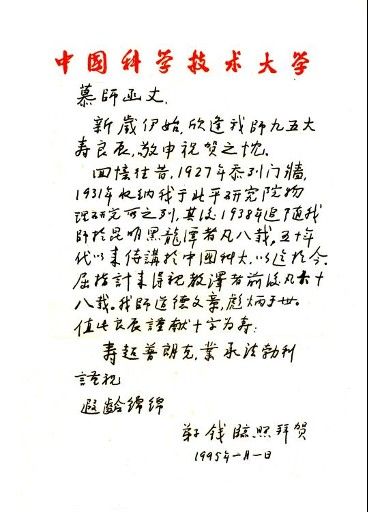 中国科学技术大学
慕師函丈,
新歲伊始,欣逢我師九五大
寿良辰,敬申祝贺之忱.
回憶往昔,1927年忝列门牆,
1931年收纳我于北平研究院物
理研究所之列,其後1938年追随我
師於昆明黑龍潭者凡八载,五十年
代以来侍講於中国科大,以迄於今.
屈指計来得親教澤者前後凡六十
八载。我師道德文章,彪炳于世。
值此良辰謹献十字为寿:
寿超普朗克,業承法勃利
謹祝
遐齡绵绵
弟子 钱臨照拜贺
1995年一月一日